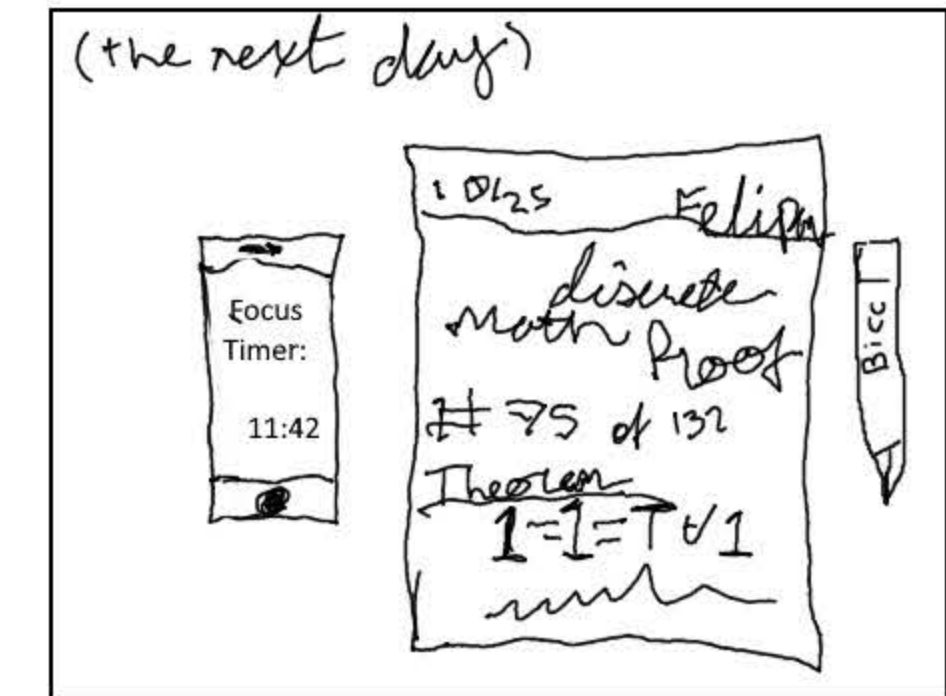 (the next day)
Focus
Timer:
11:42
discrete
Math Proof
# 75 of 132
Theorem
1=1=T ∀ 1
Bicc